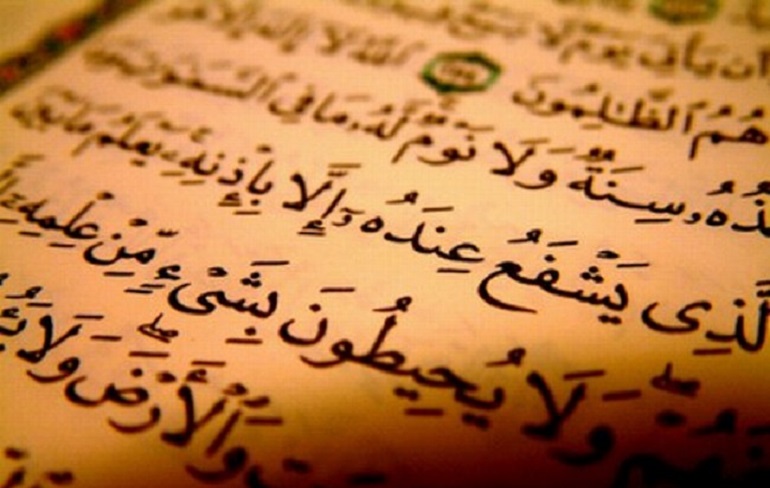 أَن يَأْتِيَ يَوْمٌ لَّا بَيْعٌ
هُمُ ٱلظَّٰلِمُونَ ٱللَّهُ لَآ إِلَٰهَ إِلَّا
سِنَةٌ وَلَا نَوْمٌ لَّهُۥ مَا فِى ٱلسَّمَٰوَٰتِ
ٱلَّذِى يَشْفَعُ عِندَهُۥٓ إِلَّا بِإِذْنِهِۦ يَعْلَمُ مَا بَيْنَ
وَلَا يُحِيطُونَ بِشَىْءٍ مِّنْ عِلْمِهِۦٓ
وَٱلْأَرْضَ وَلَا